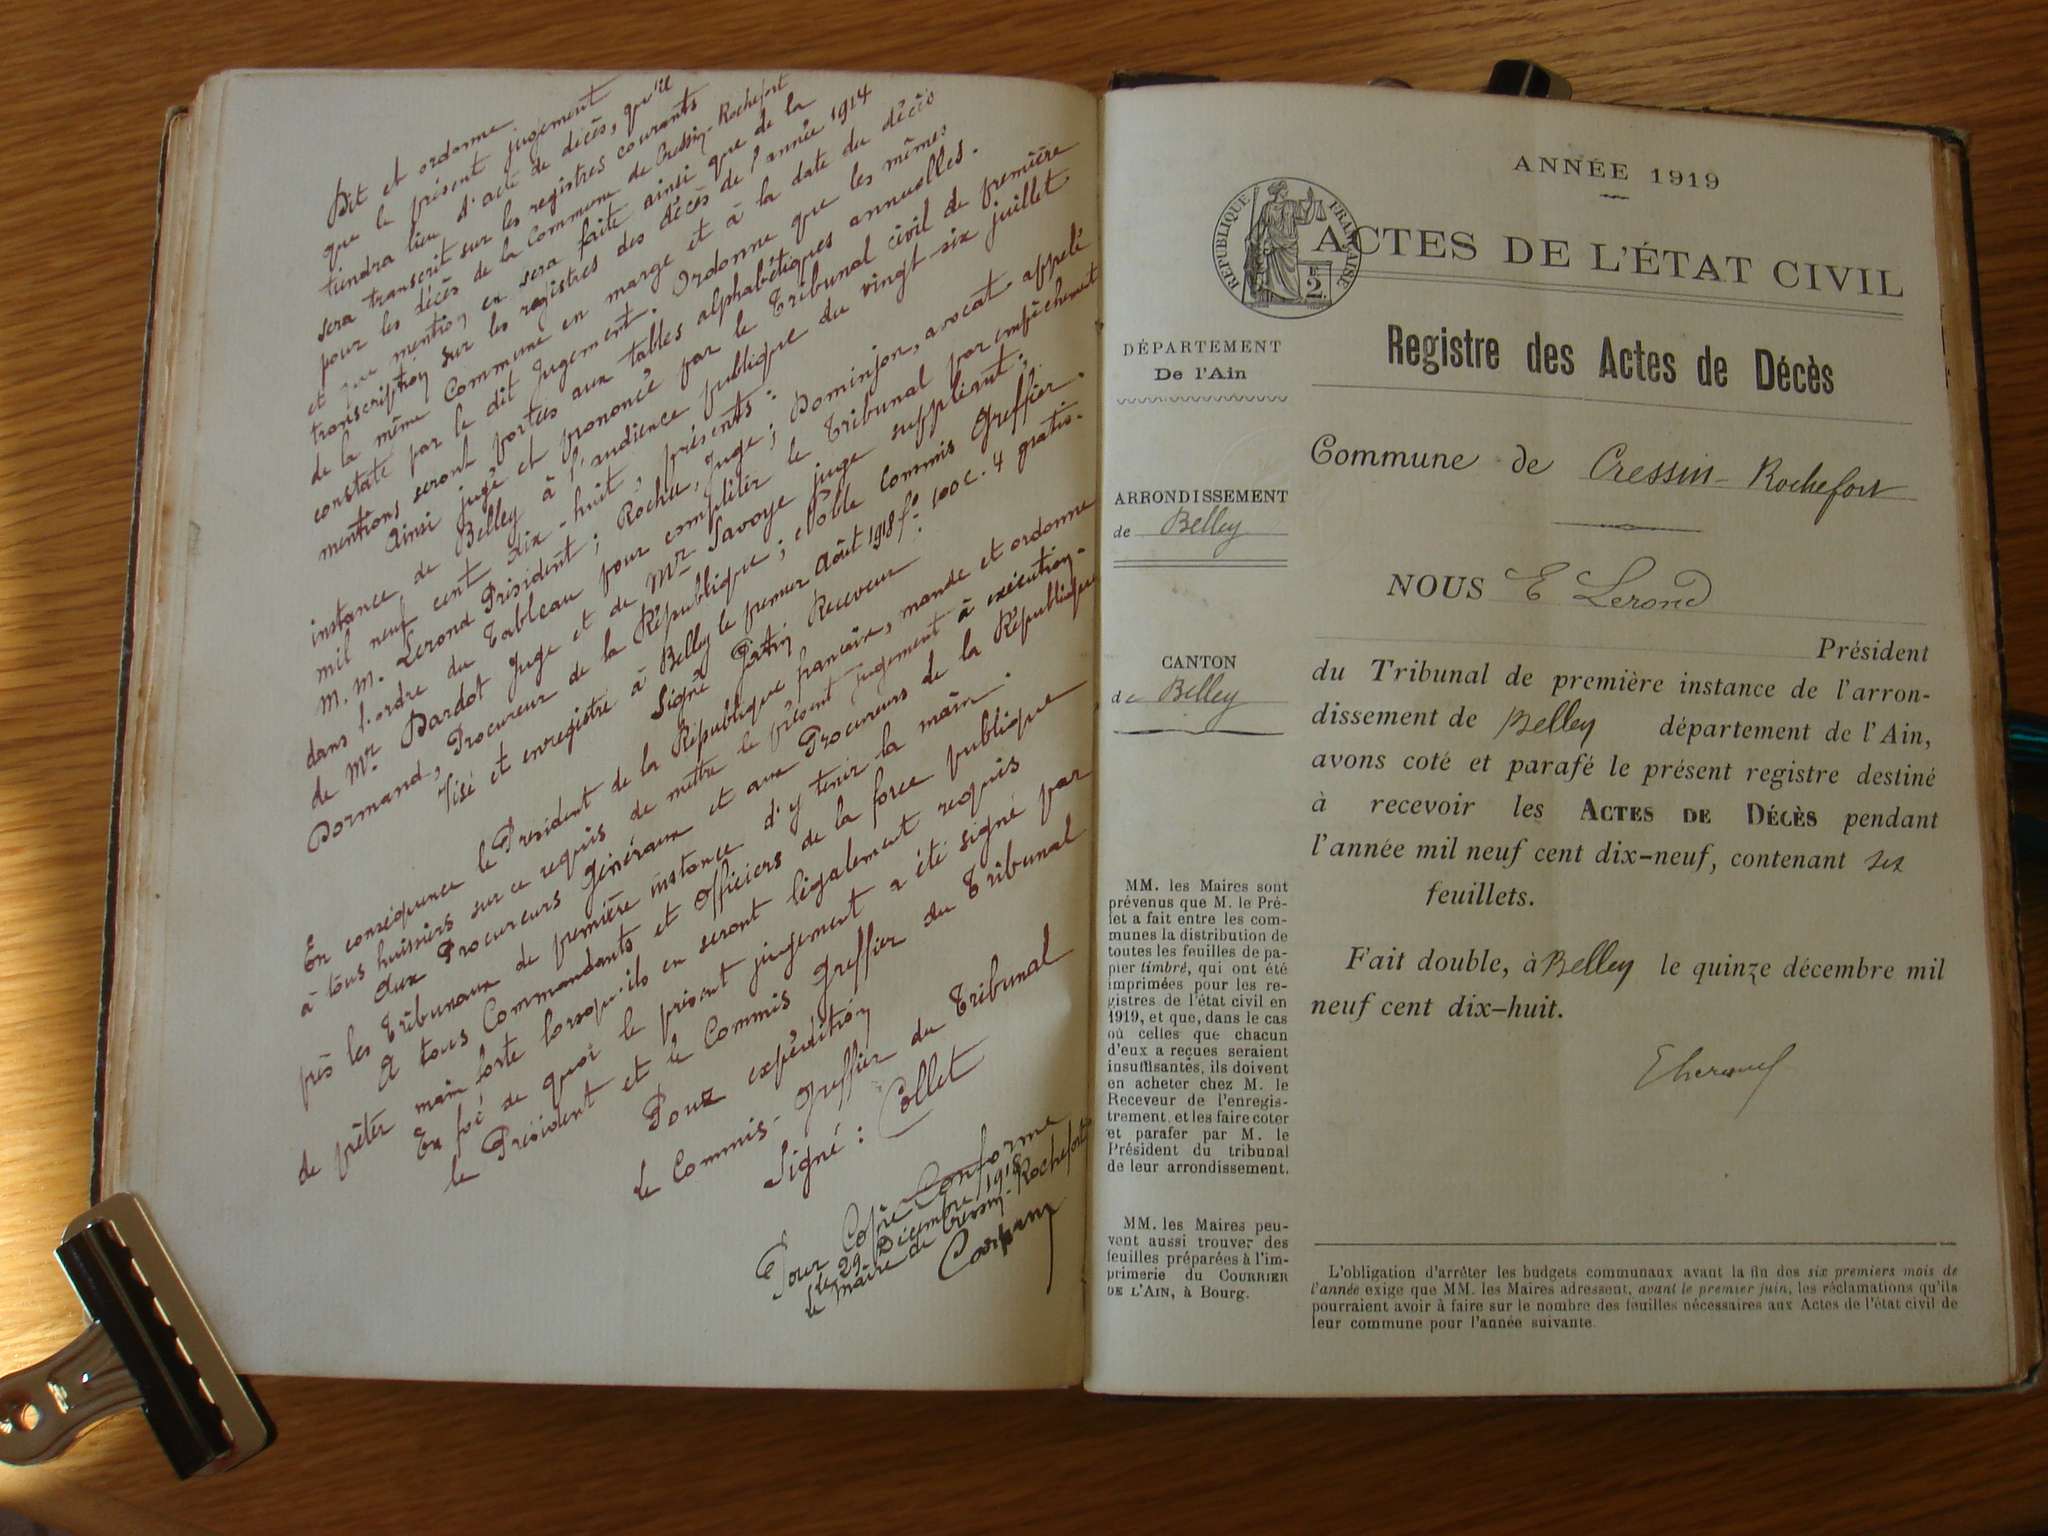 Dit et ordonne
que le présent jugement
tiendra lieu d'acte de décès, qu'il
sera transcrit sur les registres courants
pour les décès de la Commune de Cressin-Rochefort
et que mention en sera faite ainsi que de la
transcription sur les registres des décès de l'année 1914
de la même Commune en marge et à la date du décès
constaté par le dit Jugement. Ordonne que les mêmes
mentions seront portées aux tables alphabétiques annuelles.
Ainsi jugé et prononcé par le Tribunal civil de première
instance de Belley à l'audience publique du vingt-six juillet
mil neuf cent dix-huit, présents:
M.M. Lerond Président; Rochu, Juge; Dominjon, avocat appelé
dans l'ordre du Tableau pour compléter le Tribunal par empêchement
de Mr. Dardot Juge et de Mr. Savoye juge suppléant;
Dormand, Procureur de la République; Noble Commis Greffier.
Visé et enregistré à Belley le premier Août 1918 fo. 100 c. 4 gratis.
Signé Receveur
En conséquence le Président de la République française, mande et ordonne
à tous huissiers sur ce requis de mettre le présent jugement à exécution.
Aux Procureurs Généraux et aux Procureurs de la République
près les Tribunaux de première instance d'y tenir la main.
A tous Commandants et Officiers de la force publique
de prêter main forte lorsqu'ils en seront légalement requis
En foi de quoi le présent jugement a été signé par
le Président et le Commis Greffier du Tribunal
Pour expédition
Le Commis-Greffier du Tribunal
Signé: Collet
Pour Copie Conforme
Le 29 Décembre 1918
Le Maire de Cressin-Rochefort
ANNÉE 1919
RÉPUBLIQUE FRANÇAISE
2
ACTES DE L'ÉTAT CIVIL
Registre des Actes de Décès
DÉPARTEMENT
De l'Ain
ARRONDISSEMENT
de Belley
CANTON
de Belley
MM. les Maires sont
prévenus que M. le Pré-
fet a fait entre les com-
munes la distribution de
toutes les feuilles de pa-
pier timbré, qui ont été
imprimées pour les re-
gistres de l'état civil en
1919, et que, dans le cas
où celles que chacun
d'eux a reçues seraient
insuffisantes, ils doivent
en acheter chez M. le
Receveur de l'enregis-
trement, et les faire coter
et parafer par M. le
Président du tribunal
de leur arrondissement.
MM. les Maires peu-
vent aussi trouver des
feuilles préparées à l'im-
primerie du COURRIER
DE L'AIN, à Bourg.
Commune de Cressin-Rochefort
NOUS E Lerond
Président
du Tribunal de première instance de l'arron-
dissement de Belley département de l'Ain,
avons coté et parafé le présent registre destiné
à recevoir les ACTES DE DÉCÈS pendant
l'année mil neuf cent dix-neuf, contenant six
feuillets.
Fait double, à Belley le quinze décembre mil
neuf cent dix-huit.
L'obligation d'arrêter les budgets communaux avant la fin des six premiers mois de
l'année exige que MM. les Maires adressent, avant le premier juin, les réclamations qu'ils
pourraient avoir à faire sur le nombre des feuilles nécessaires aux Actes de l'état civil de
leur commune pour l'année suivante.